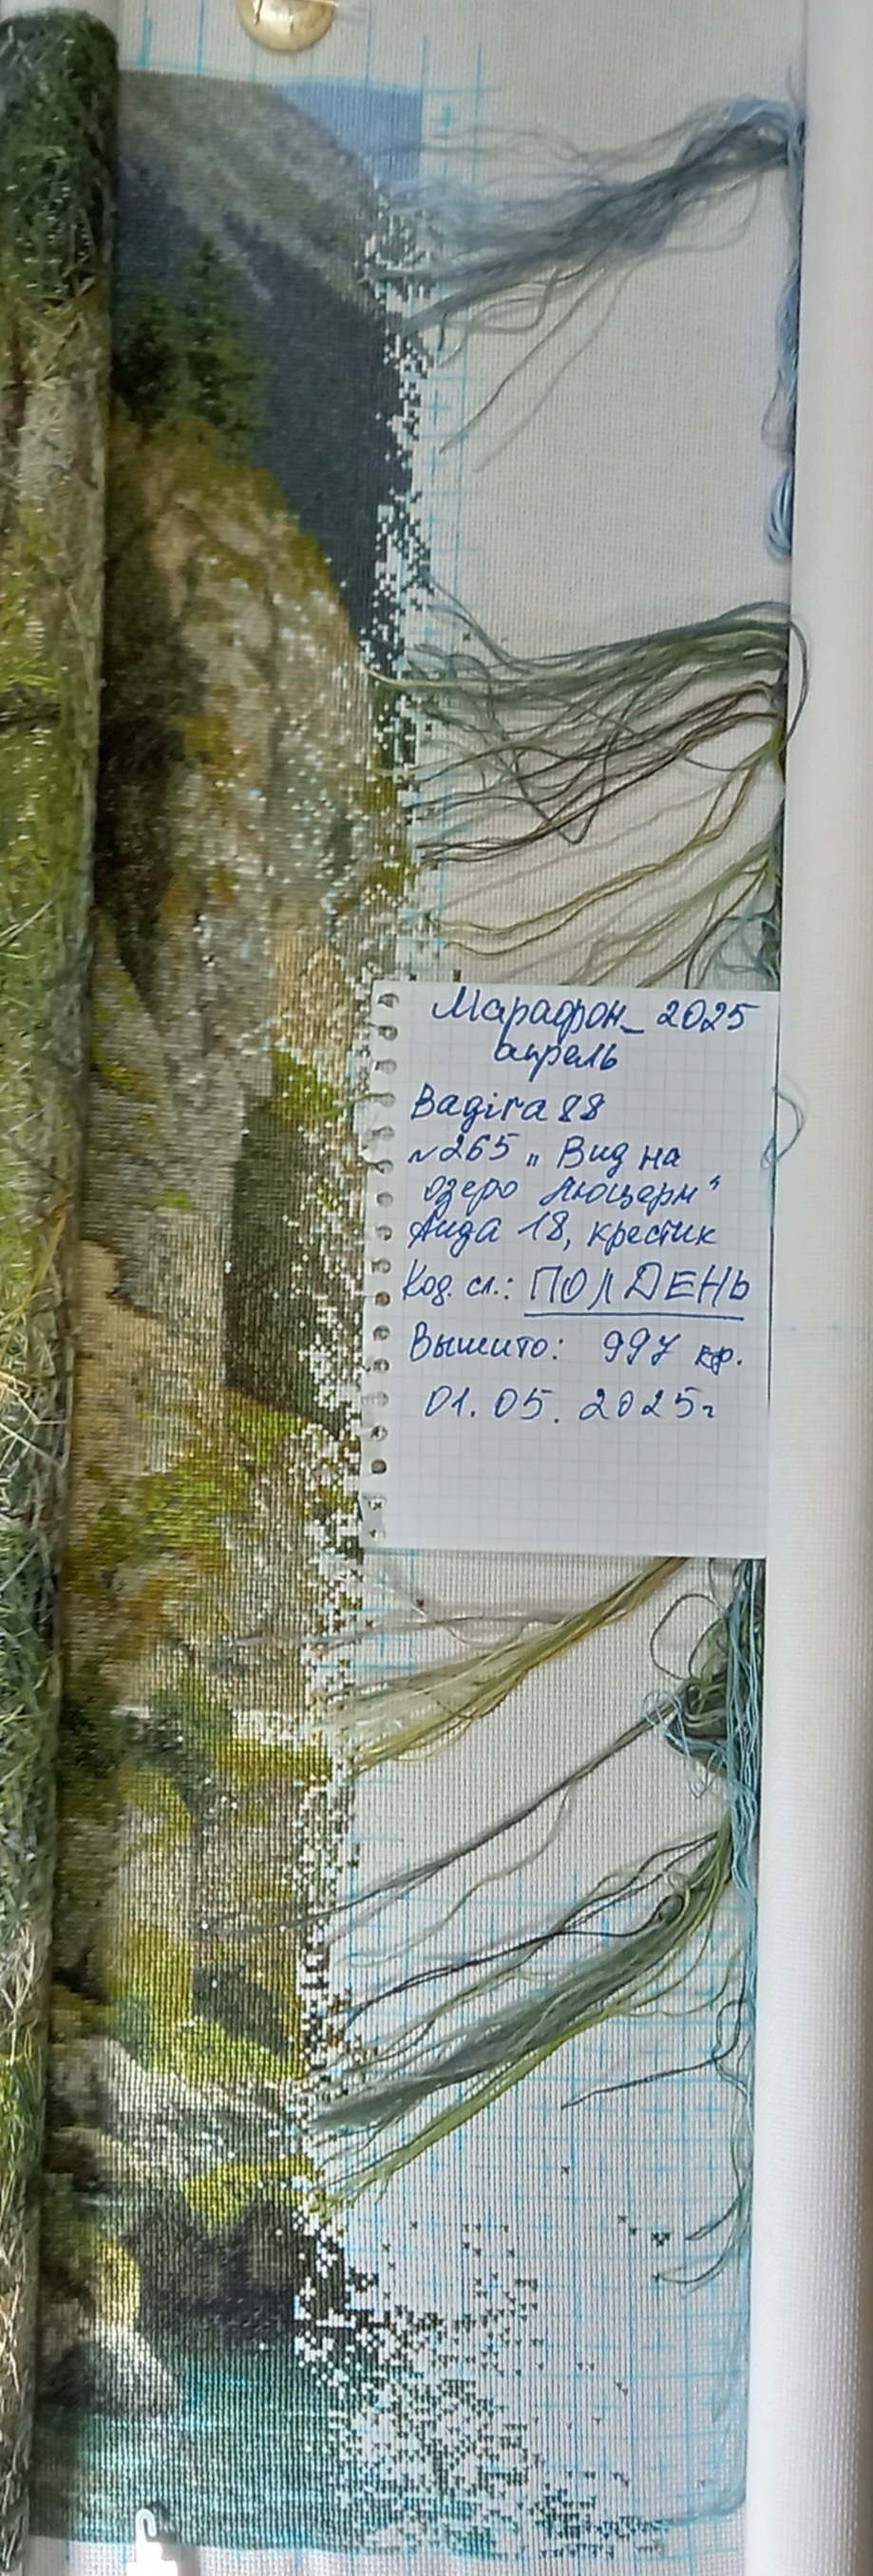 Марафон_ 2025
апрель
Bagira88
№265 „Вид на
озеро Люцерн“
Аида 18, крестик
Код. сл.: ПОЛДЕНЬ
Вышито: 997 кр.
01.05.2025г